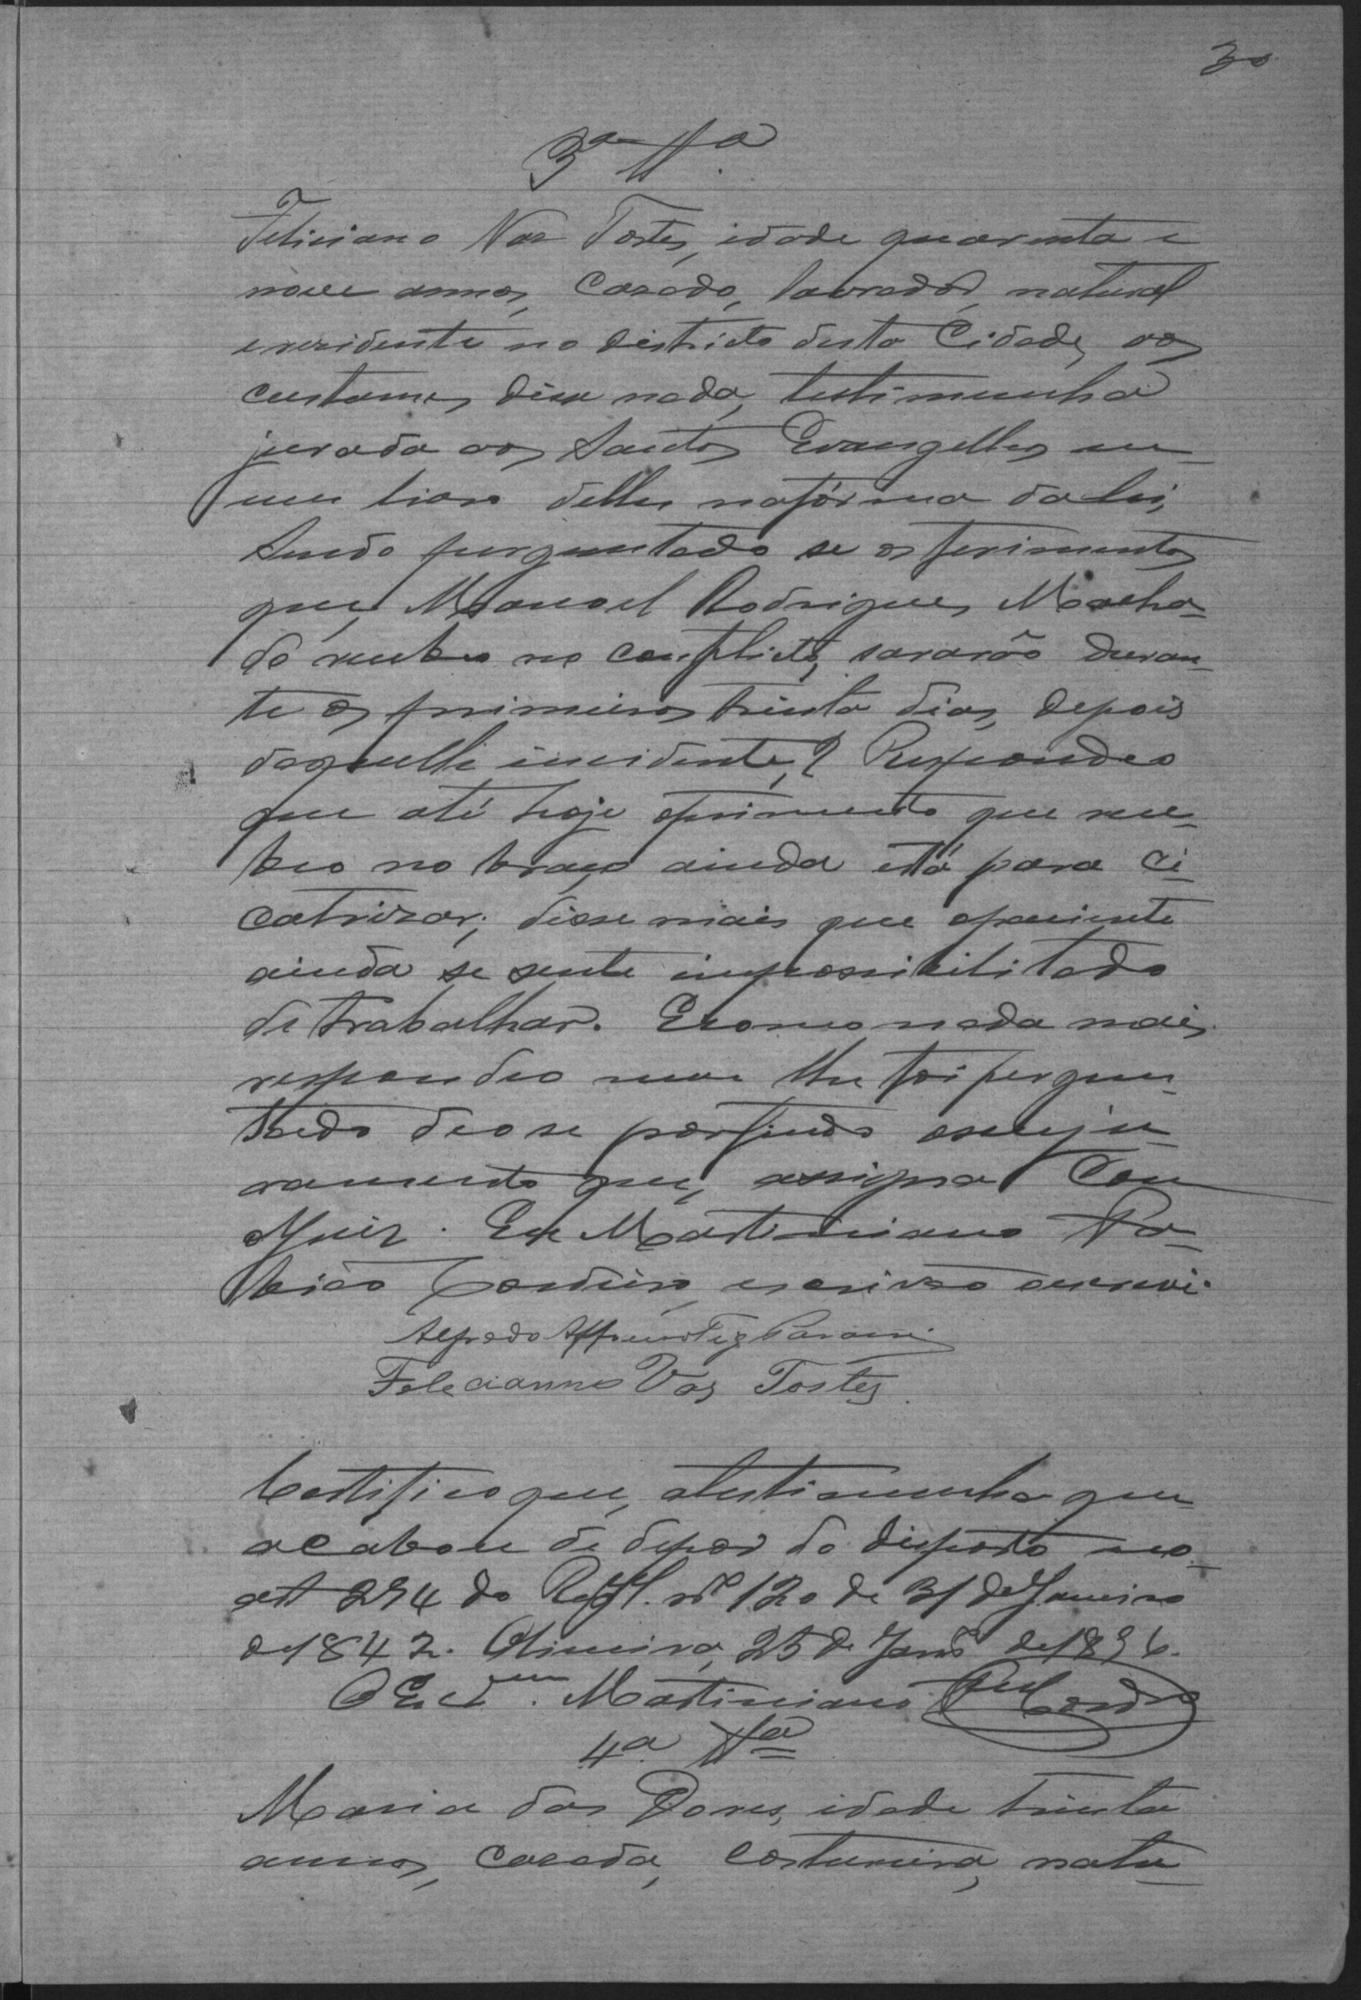 30
3ª Ttª
Feliciano Vas Tostes, idade quarenta e
nove annos, casado, lavrador, natural
e residente no districto desta Cidade, aos
custumes disse nada, testimunha
jurada aos Santos Evangelhos em
um livro delles na fórma da lei,
Sendo perguntado se os ferimentos
que, Manoel Rodrigues Macha-
do recebeo no conflicto, sararão duran-
te os primeiros trinta dias, depois
daquelle incidente? Respondeo
que até hoje o ferimento que rece-
beo no braço ainda está para ci-
catrizar; disse mais que o paciente
ainda se sente impossibilitado
de trabalhar. E como nada mais
respondeo nem lhe foi pergun-
tado deo-se por findo este ju-
ramento que, assigna com
o Juiz. Eu Martiniano
Cordeiro, escrivão escrevi.
Alfredo
Feleciannno Vas Tostes
Certifico que, a testimunha que
acabou de depor do disposto no
art 294 do Regl. nº 120 de 31 de Janeiro
de 1842. 25 de Janrº de 1896.
O Escrm. Martiniano
4ª Ttª
Maria das Dores, idade trinta
annos, casada, costureira, natu-